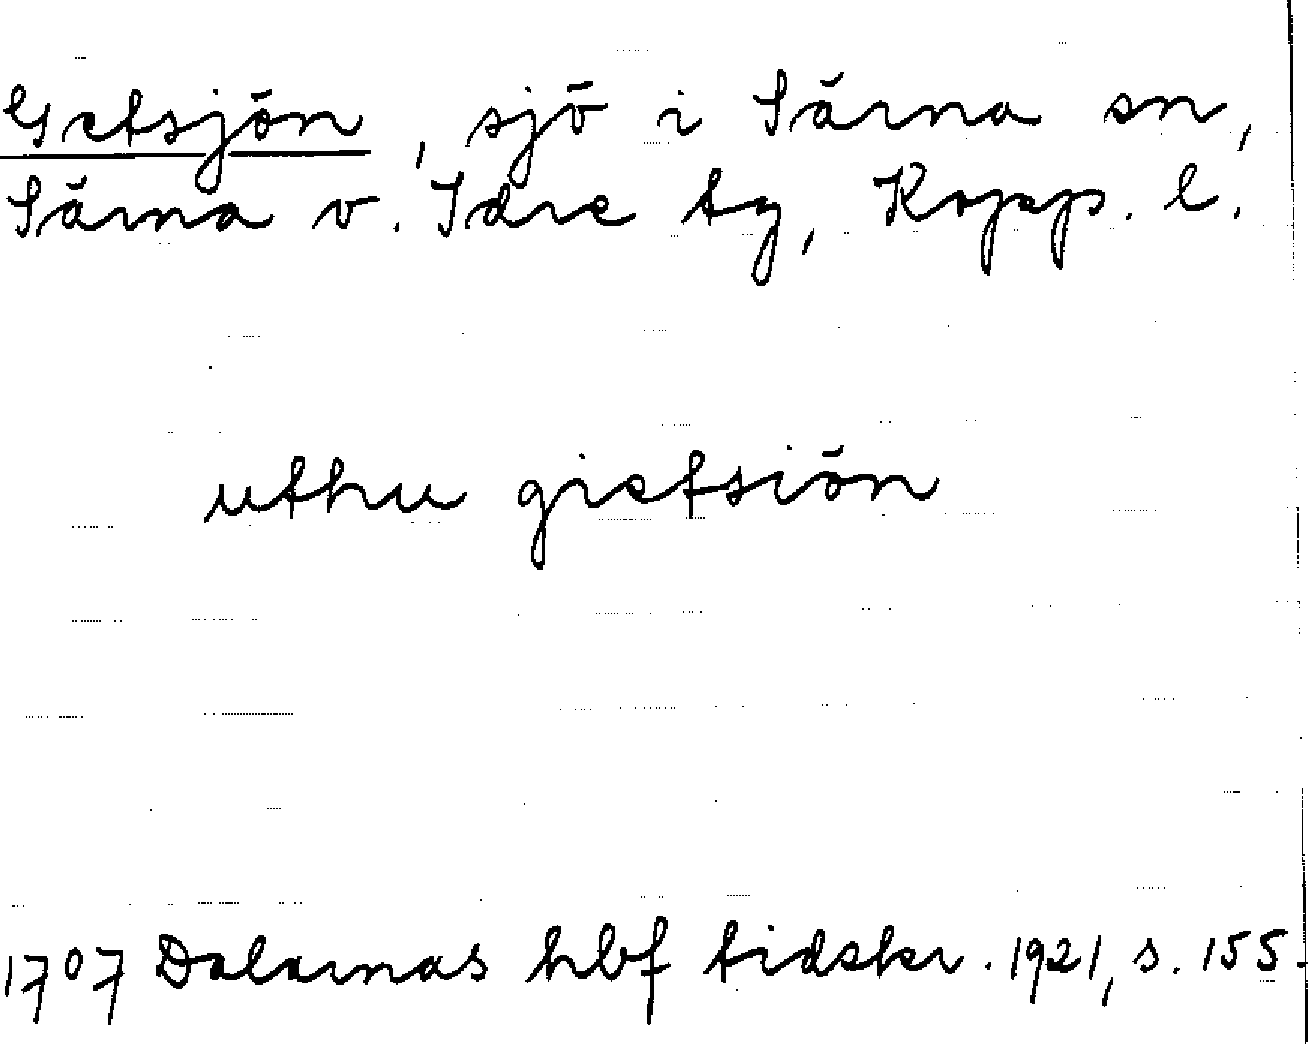 Getsjön, sjö i Särna sn,
Särna o. Idre tg, Kopp. l.
uthu gietsiön
1707 Dalarnas hbf tidskr. 1921, s. 155.